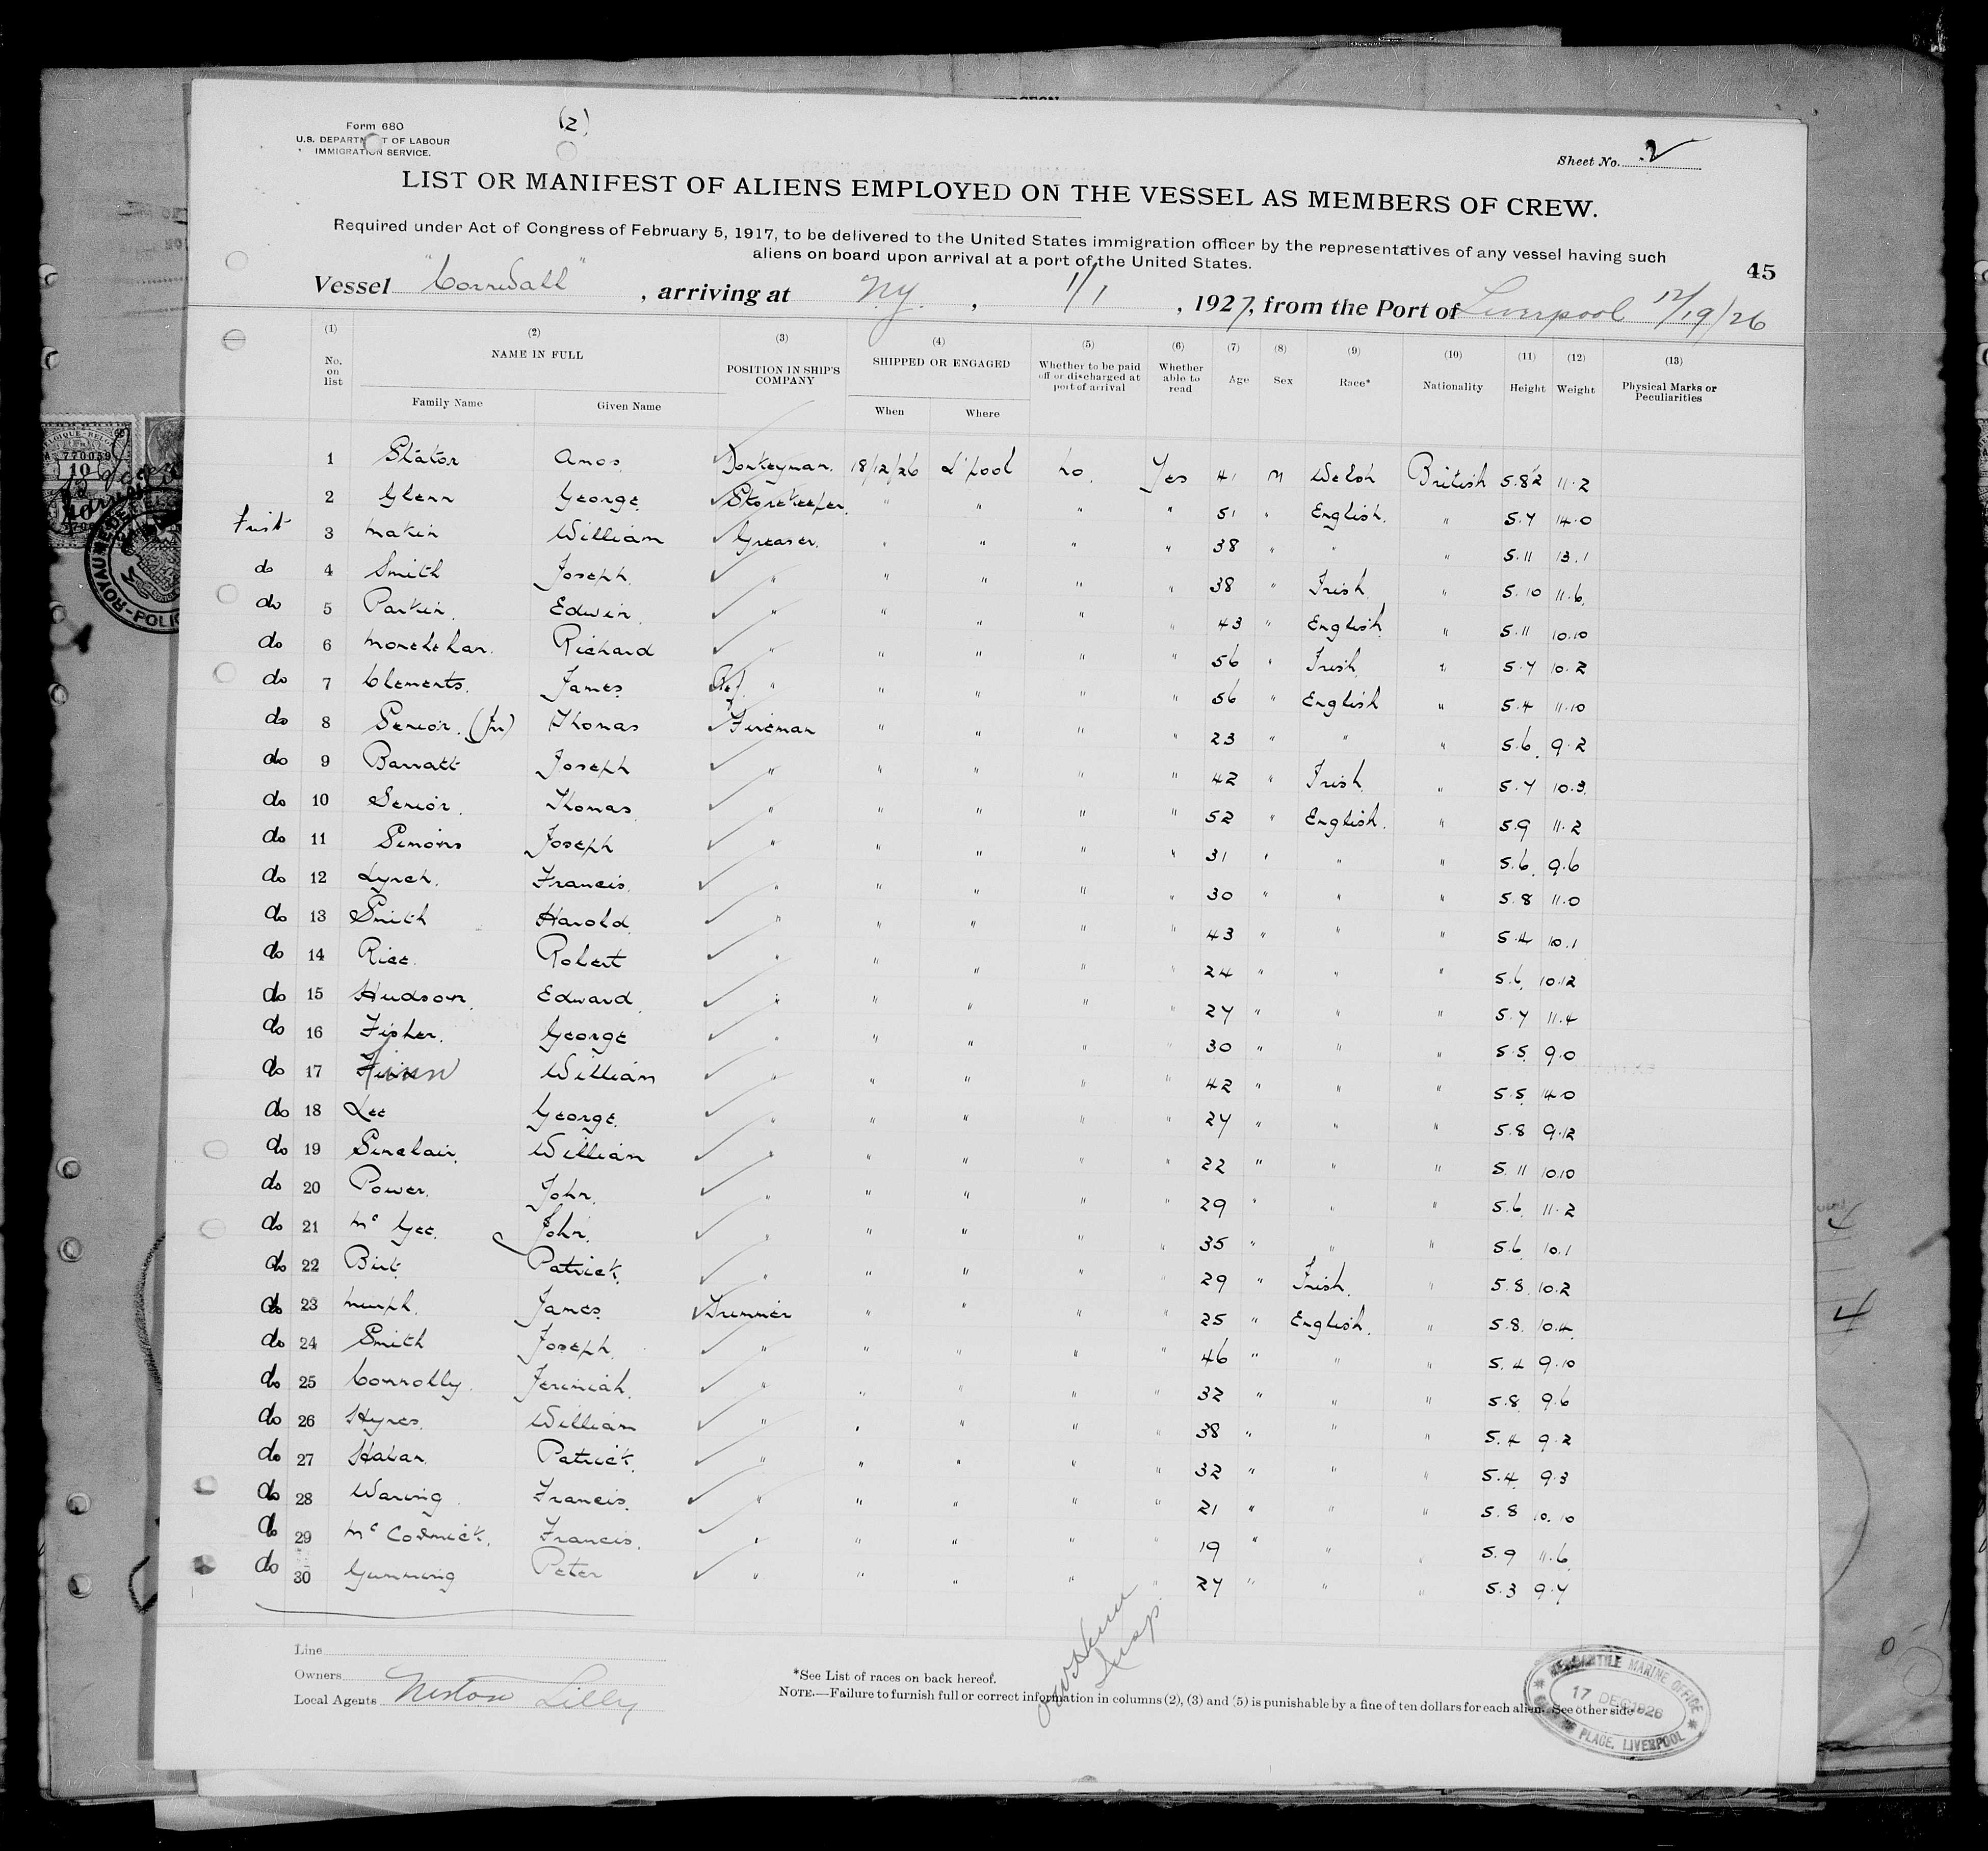 Form 680
U.S. DEPARTM T OF LABOUR
IMMIGRATION SERVICE.
(2)
Sheet No. 2
LIST OR MANIFEST OF ALIENS EMPLOYED ON THE VESSEL AS MEMBERS OF CREW.
Required under Act of Congress of February 5, 1917, to be delivered to the United States immigration officer by the representatives of any vessel having such
aliens on board upon arrival at a port of the United States.
45
Vessel "Cornwall", arriving at N.Y., 1/1, 1927, from the Port of Liverpool 12/19/26
(1) (2) (3) (4) (5) (6) (7) (8) (9) (10) (11) (12) (13)
No. on list NAME IN FULL POSITION IN SHIP'S COMPANY SHIPPED OR ENGAGED Whether to be paid off or discharged at port of arrival Whether able to read Age Sex Race* Nationality Height Weight Physical Marks or Peculiarities
Family Name Given Name When Where
1 Slator Amos. Donkeyman. 18/12/26 L'pool No. Yes 41 M Welsh British 5.8½ 11.2
2 Glenn George. Storekeeper. " " " " 51 " English. " 5.7 14.0
First 3 Makin William Greaser. " " " " 38 " " " 5.11 13.1
do 4 Smith Joseph. " " " " " 38 " Irish. " 5.10 11.6
do 5 Parkin. Edwin. " " " " " 43 " English. " 5.11 10.10
do 6 Richard " " " " " 56 " Irish. " 5.7 10.2
do 7 Clements. James. Ref. " " " " " 56 " English " 5.4 11.10
do 8 Senior. (Jnr) Thomas Fireman " " " " 23 " " " 5.6 9.2
do 9 Barratt Joseph " " " " " 42 " Irish. " 5.7 10.3
do 10 Senior. Thomas. " " " " " 52 " English. " 5.9 11.2
do 11 Simons Joseph " " " " " 31 " " " 5.6 9.6
do 12 Lynch. Francis. " " " " " 30 " " " 5.8 11.0
do 13 Smith Harold. " " " " " 43 " " " 5.4 10.1
do 14 Rice. Robert " " " " " 24 " " " 5.6 10.12
do 15 Hudson. Edward. " " " " " 27 " " " 5.7 11.4
do 16 Fisher. George " " " " " 30 " " " 5.5 9.0
do 17 Finn William " " " " " 42 " " " 5.5 14.0
do 18 Lee George. " " " " " 27 " " " 5.8 9.12
do 19 Sinclair. William " " " " " 22 " " " 5.11 10.10
do 20 Power. John. " " " " " 29 " " " 5.6 11.2
do 21 Mc Gee. John. " " " " " 35 " " " 5.6 10.1
do 22 Birt. Patrick. " " " " " 29 " Irish. " 5.8 10.2
do 23 Murph. James. Trimmer " " " " 25 " English. " 5.8 10.4
do 24 Smith Joseph. " " " " " 46 " " " 5.4 9.10
do 25 Connolly. Jeremiah. " " " " " 32 " " " 5.8 9.6
do 26 Hynes. William " " " " " 38 " " " 5.4 9.2
do 27 Patrick. " " " " " 32 " " " 5.4 9.3
do 28 Waring. Francis. " " " " " 21 " " " 5.8 10.10
do 29 Mc Cormick. Francis. " " " " " 19 " " " 5.9 11.6
do 30 Gunning Peter " " " " " 27 " " " 5.3 9.7
Line
Owners
Local Agents Norton Lilly
*See List of races on back hereof.
NOTE.—Failure to furnish full or correct information in columns (2), (3) and (5) is punishable by a fine of ten dollars for each alien. See other side
Insp.
MERCANTILE MARINE OFFICE
17 DEC 1926
PLACE, LIVERPOOL